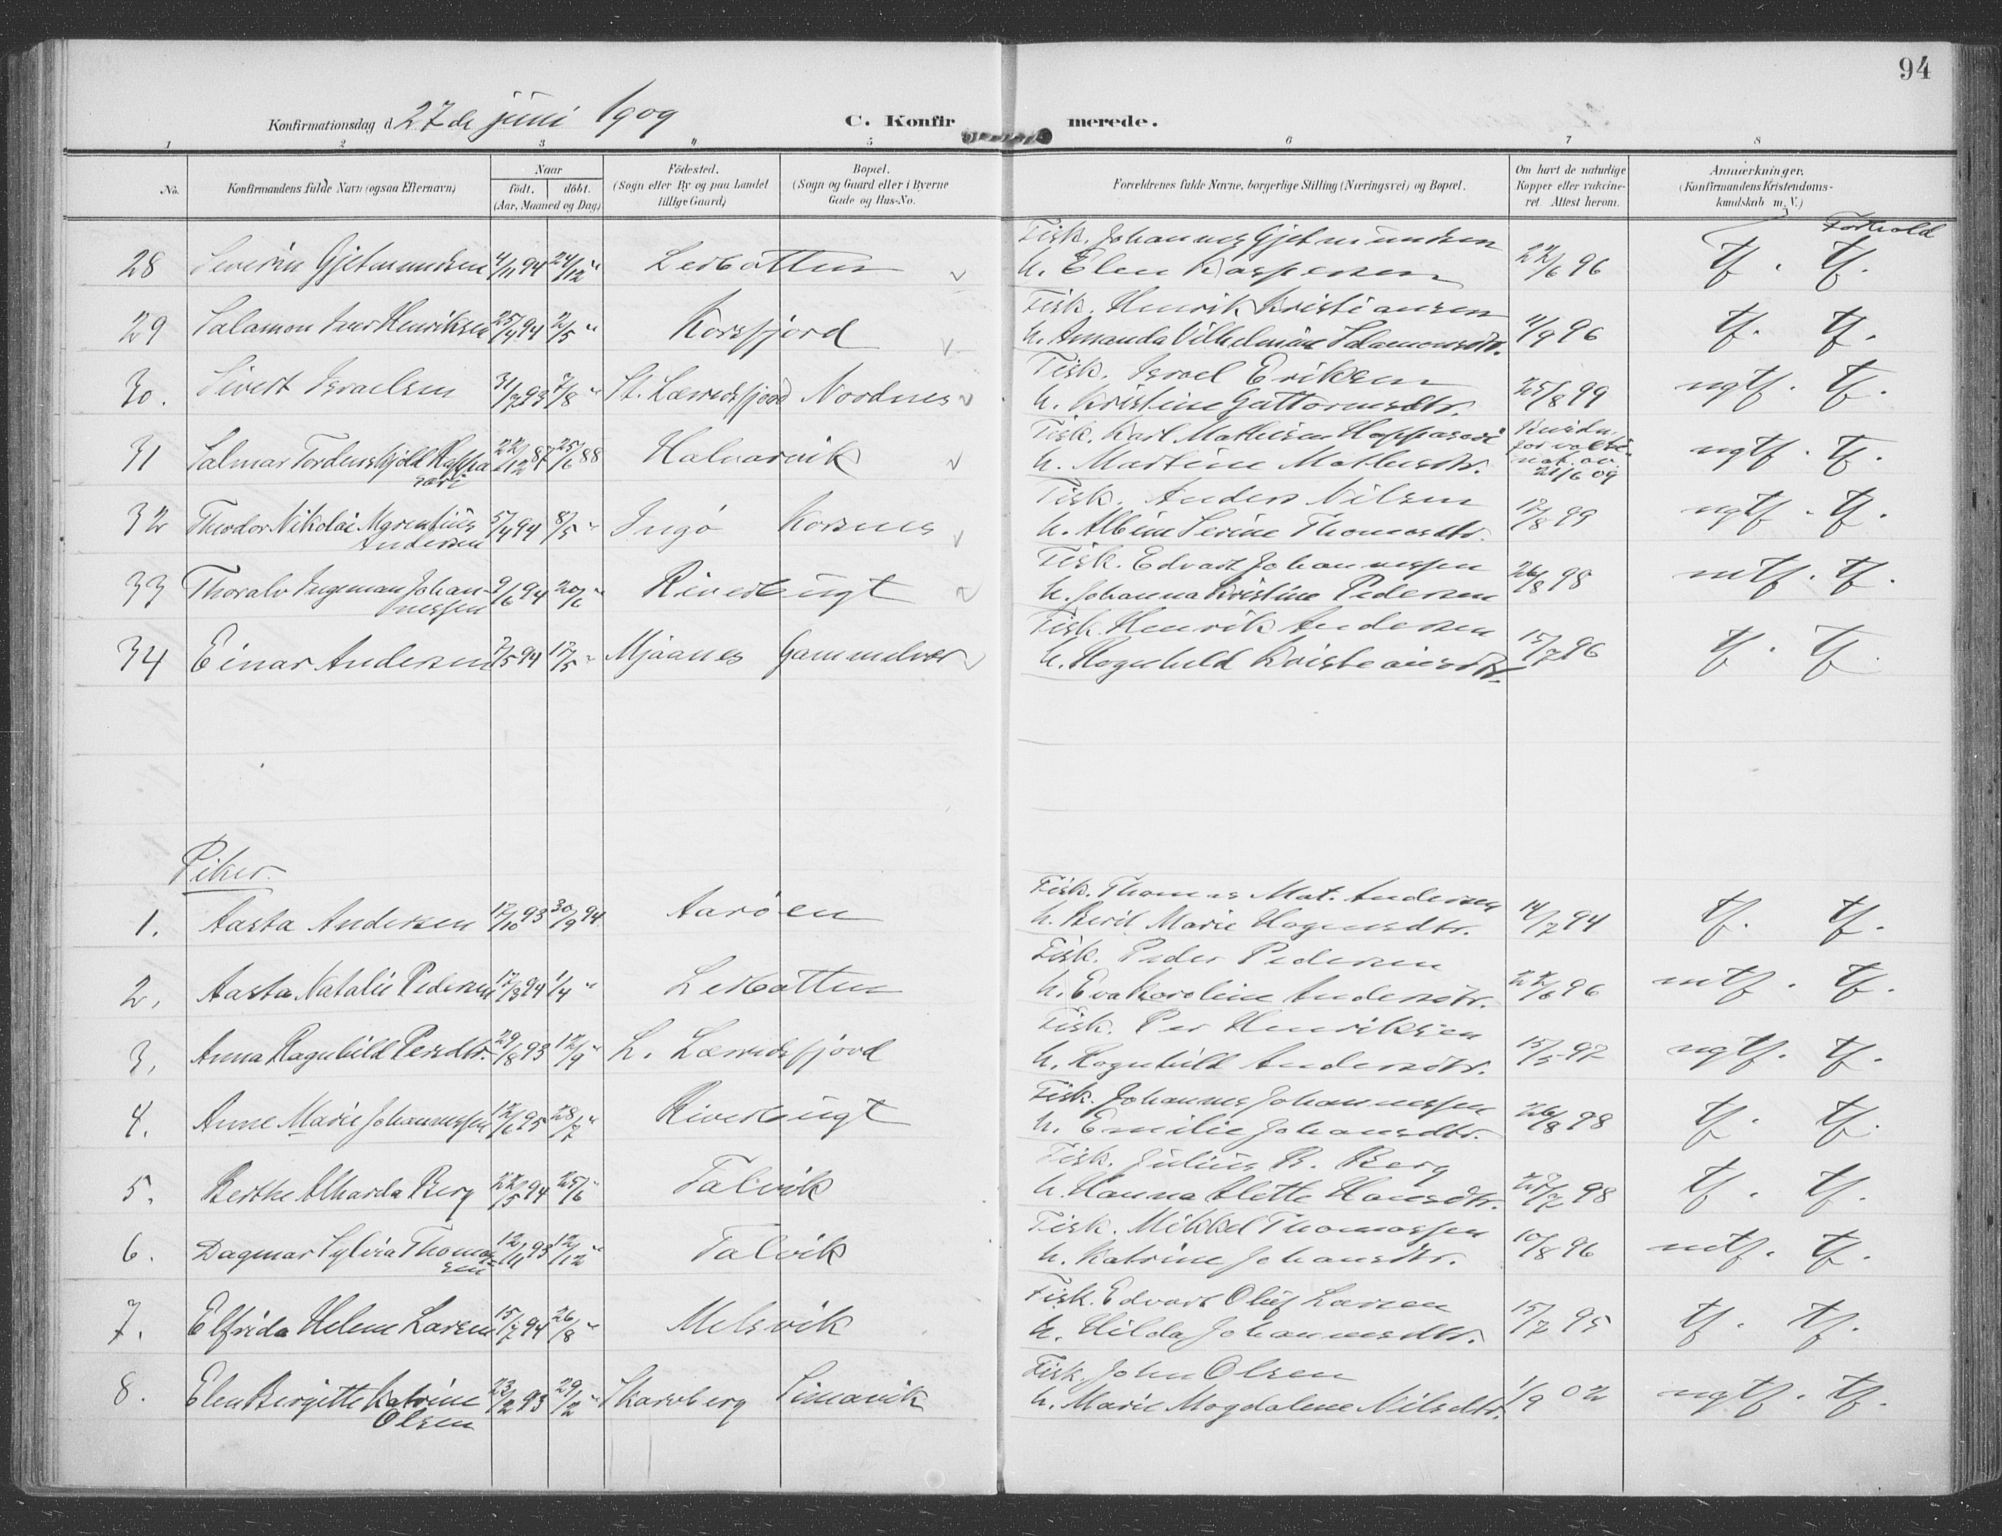 94
Konfirmationsdag d. 27de juni 1909
C. Konfirmerede.
1 2 3 4 5 6 7 8
No. Konfirmandens fulde Navn (ogsaa Efternavn)
Naar
födt. döbt.
(Aar, Maaned og Dag)
Födested.
(Sogn eller By og paa Landet
tillige Gaard)
Bopæl.
(Sogn og Gaard eller i Byerne
Gade og Hus-No.
Forældrenes fulde Navne, borgerlige Stilling (Næringsvei) og Bopæl.
Om havt de naturlige
Kopper eller vakcine-
ret. Attest herom.
Anmærkninger.
(Konfirmandens Kristendoms-
kundskab m. V.)
Forhold
28 Severin Gjetmundsen 4/11 94 24/12 " Lerbotten v Fisk. Johannes Gjetmundsen
h. Elen Kaspersen 22/6 96 tf. tf.
29 Salamon Henriksen 25/4 94 2/5 " Korsfjord v Fisk. Henrik Kristiansen
h. Amanda Vilhelmine Salamonsdtr. 11/9 96 tf. tf.
30. Sivert Israelsen 31/7 93 7/8 " St. Lerredsfjord Nordnes v Fisk. Israel Eriksen
h. Kristine Guttormsdtr. 25/8 99 ngtf. tf.
31 Salmar Tordenskjold 22/12 87 25/6 88 Halvarvik v Fisk. Karl Mathisen Hoppasari
h. Martine Mathisdtr. 21/6 09 ngtf. tf.
32 Theodor Nikolai
Andersen 5/4 94 8/5 " Ingö Korsnes v Fisk. Anders Nilsen
h. Albine Serine Thomasdtr. 17/8 99 ngtf. tf.
33 Thoralv Ingeman Johan-
nessen 9/6 94 20/6 " Riverbugt v Fisk. Edvart Johannessen
h. Johanna Kristine Pedersen 26/8 98 mtf. tf.
34 Einar Andersen 7/5 94 17/5 " Mjaanes Gammelvær v Fisk. Henrik Andersen
h. Ragnhild Kristiansdtr. 15/7 96 tf. tf.
Piker.
1. Aasta Andersen 17/10 93 30/9 94 Aaröen Fisk. Thomas Mat. Andersen
h. Beril Marie Hagensdtr. 14/7 94 tf. tf.
2. Aasta Natalie Pedersen 17/3 94 1/4 " Lerbotten Fisk. Peder Pedersen
h. Eva Karoline Andersdtr. 22/6 96 mtf. tf.
3. Anna Ragnhild Persdtr. 29/8 93 17/9 " L. Lerredsfjord Fisk. Per Henriksen
h. Ragnhild Andersdtr. 15/5 97 ngtf. tf.
4. Anne Marie Johannessen 12/6 95 28/7 " Riverbugt Fisk. Johannes Johannessen
h. Emilie Johansdtr. 26/8 98 tf. tf.
5. Berthe Alharda Berg 22/5 94 25/6 " Talvik Fisk. Julius B. Berg
h. Hanna Alette Hansdtr. 27/7 98 tf. tf.
6. Dagmar Sylvia Thomas-
sen 12/11 93 12/12 " Talvik Fisk. Mikkel Thomassen
h. Katrine Johansdtr. 10/8 96 mtf. tf.
7. Elfrida Helene Larsen 15/7 94 26/8 " Melsvik Fisk. Edvart Oluf Larsen
h. Hilda Johannesdtr. 15/7 95 tf. tf.
8. Elen Bergitte Katrine
Olsen 23/2 93 29/2 " Skarvberg Simavik Fisk. John Olsen
h. Marie Magdalene Nilsdtr. 1/9 02 ngtf. tf.